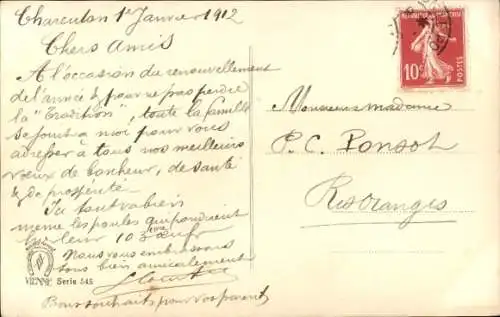 Charenton 1er Janvier 1912
Chers Amis
A l'occasion du renouvellement
de l'année & pour ne pas perdre
la "Tradition", toute la famille
se joint a moi pour vous
adresser à tous nos meilleurs
vœux de bonheur, de santé
& de prospérité.
Ici tout va bien
même les poules qui pondent
leur 103eme Œuf
Nous vous embrassons
tous bien amicalement
Bons souhaits pour vos parents
VIENNE Serie 545
REPUBLIQUE FRANÇAISE
10c POSTES
Monsieur madame
P. C. Ponsot
Ris Oranges